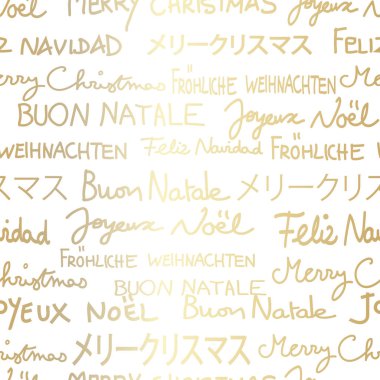 Noël MERRY CHRISTMAS Joyeux
Z NAVIDAD メリークリスマス FELIZ
erry Christmas FRÖHLICHE WEIHNACHTEN Me
BUON NATALE Joyeux Noël
WEIHNACHTEN Feliz Navidad FRÖHLICHE W
スマス Buon Natale メリークリス
vidad Joyeux Noël Feliz Nav
FRÖHLICHE WEIHNACHTEN
Christmas BUON NATALE Merry C
OYEUX NOËL Buon Natale JO
Christmas メリークリスマス Feliz
MERRY CHRISTMAS